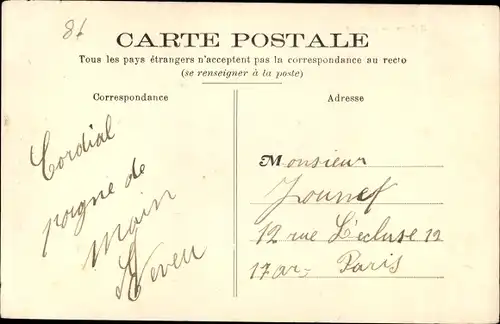 81
CARTE POSTALE
Tous les pays étrangers n'acceptent pas la correspondance au recto
(se renseigner à la poste)
Correspondance
Cordial
poigne de
Main
Neveu
Adresse
Monsieur
12 rue L'ecluse 12
17ar- Paris